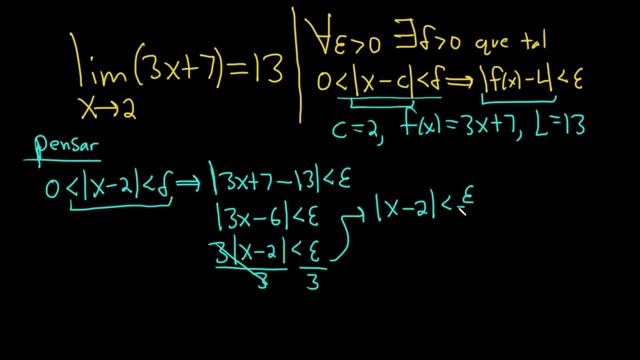 lim (3x+7) = 13
x→2
∀ε>0 ∃δ>0 que tal
0<|x-c|<δ ⟹ |f(x)-L|<ε
c=2, f(x)=3x+7, L=13
pensar
0<|x-2|<δ ⟹ |3x+7-13|<ε
|3x-6|<ε → |x-2|<ε
3|x-2|<ε
3 3